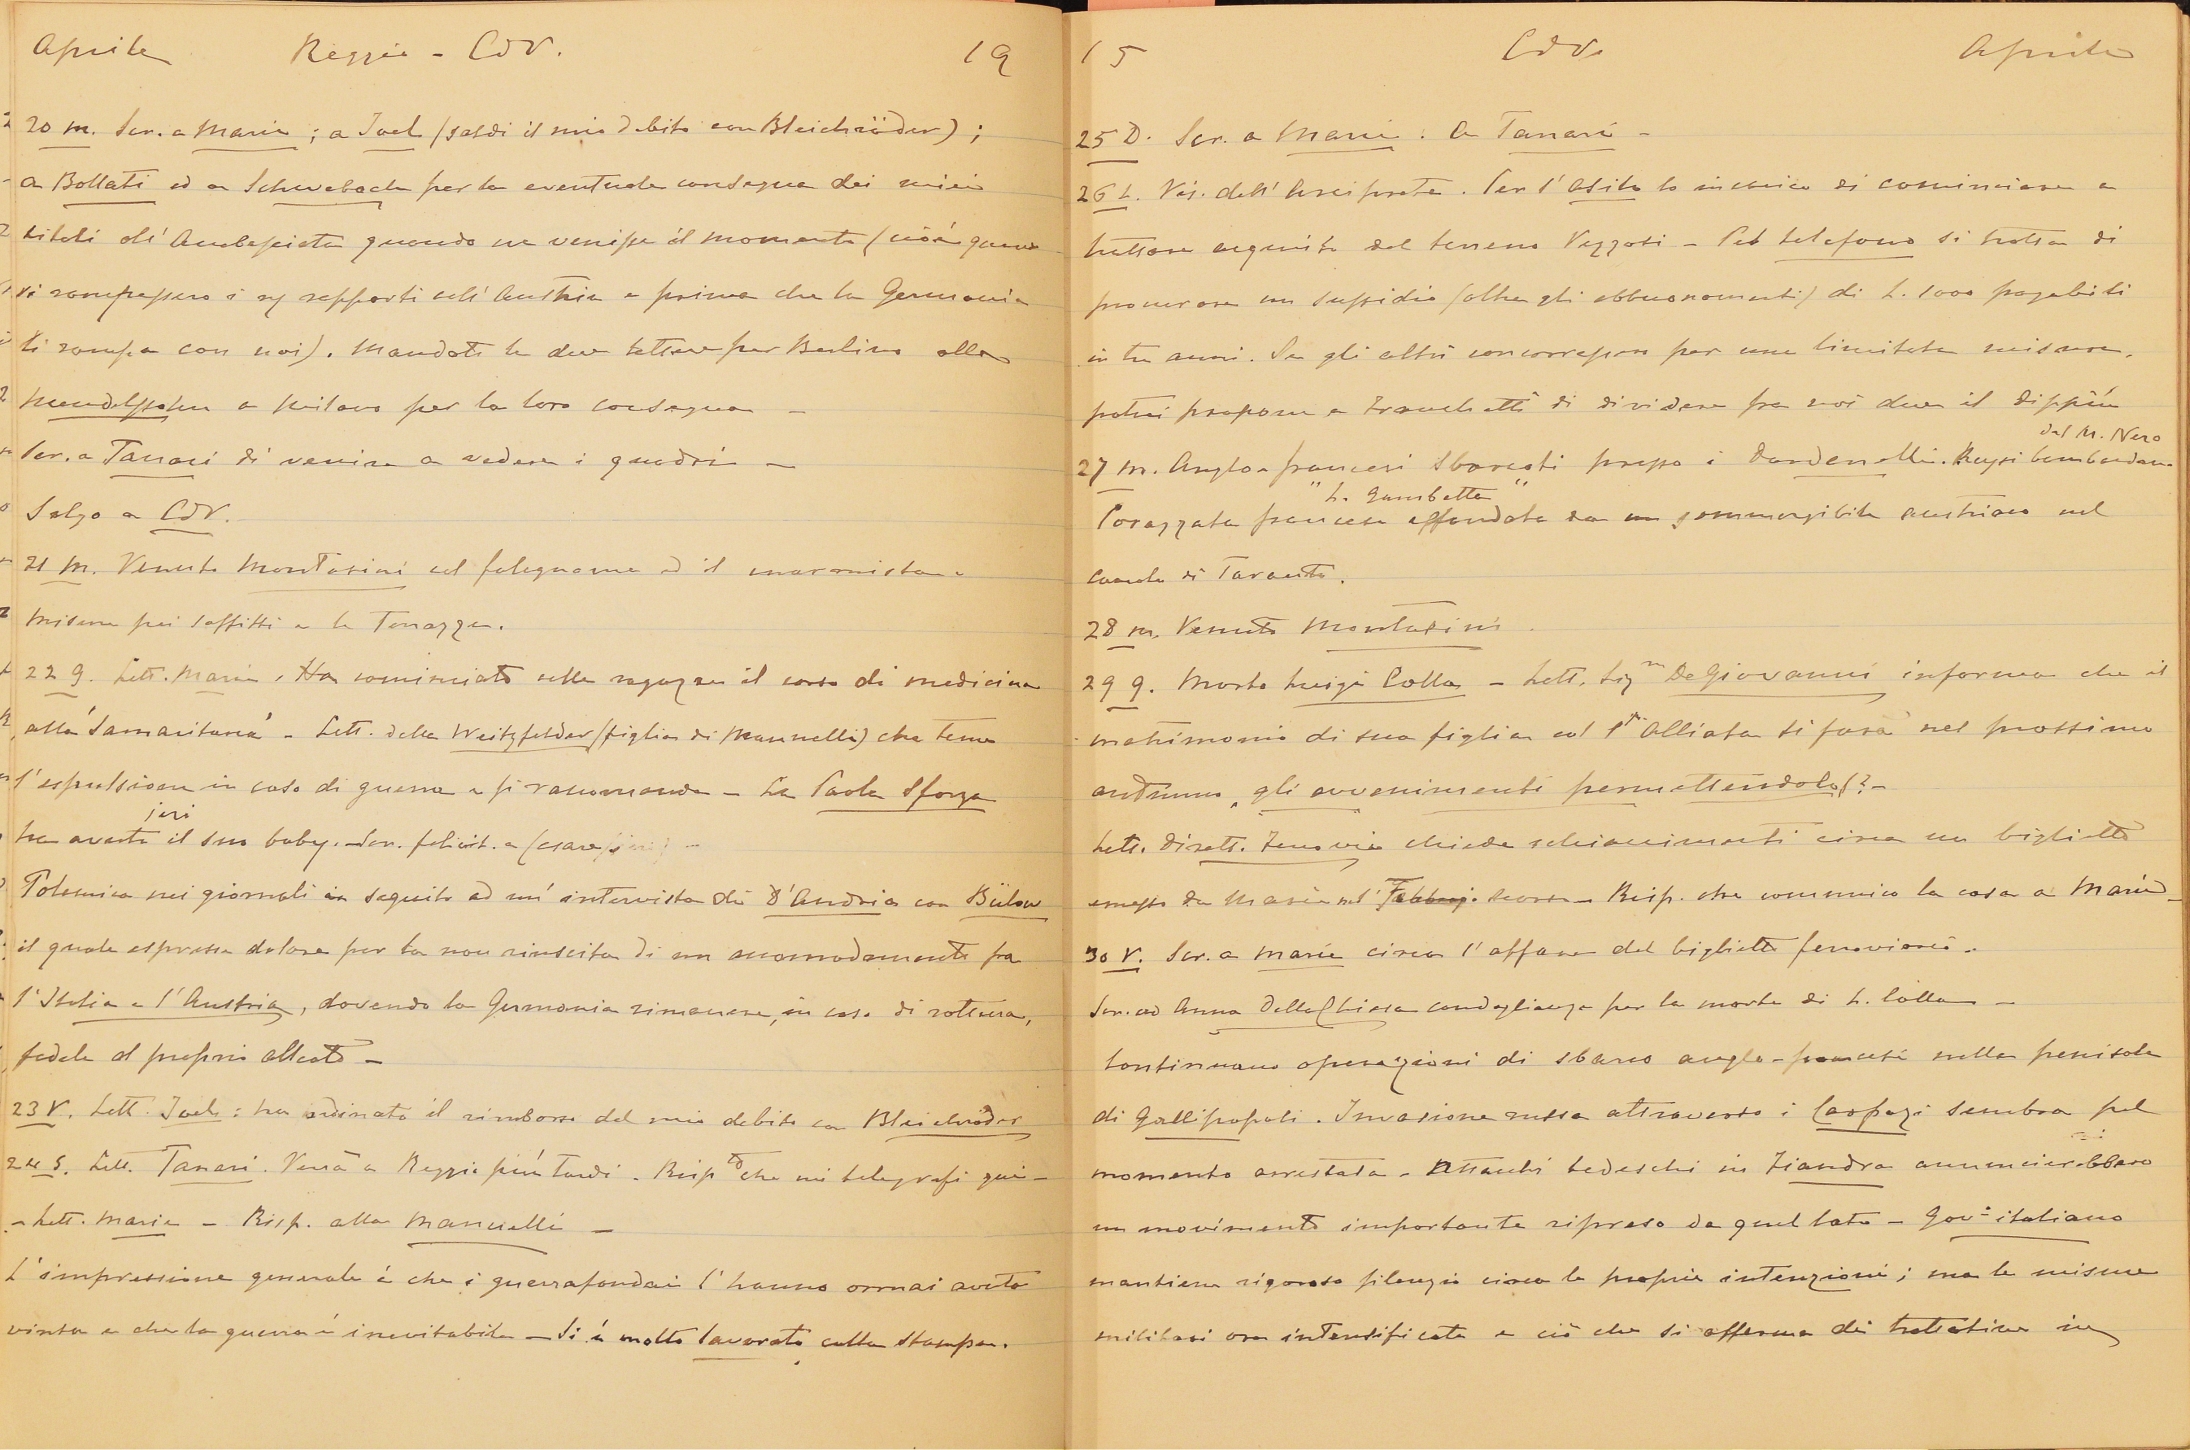 Aprile Reggio - CdV. 19
20 M. Scr. a Maria; a Joel (saldi il mio debito con Bleichröder);
a Bollati ed a Schwabach per la eventuale consegna dei miei
titoli all'Ambasciata quando ne venisse il momento (cioè quando
si rompessero i rapporti coll'Austria e prima che la Germania
li rompa con noi). Mandate le due lettere per Berlino alla
Mendelssohn a Milano per la loro consegna -
Scr. a Tanari di venire a vedere i quadri -
Salgo a CdV.
21 M. Venuto Montasini col falegname ed il marmista
misure pei soffitti e la Terrazza.
22 G. Lett. Maria. Ha cominciato colle ragazze il corso di medicina
alla 'Samaritana' - Lett. della Weitzfelder (figlia di Mannelli) che teme
l'espulsione in caso di guerra e si raccomanda - La Paola Sforza
ha avuto jeri il suo baby. - Scr. felicit. a
Polemica nei giornali in seguito ad un'intervista di D'Andria con Bülow
il quale espresse dolore per la non riuscita di un accomodamento fra
l'Italia e l'Austria, dovendo la Germania rimanere, in caso di rottura,
fedele al proprio alleato -
23 V. Lett. Joel: ha ordinato il rimborso del mio debito con Bleichröder
24 S. Lett. Tanari. Verrà a Reggio più tardi. Rispto che mi telegrafi qui -
- Lett. Maria - Risp. alla Mannelli -
L'impressione generale è che i guerrafondai l'hanno ormai avuta
vinta e che la guerra è inevitabile - Si è molto lavorato colla stampa.
15 CdV. Aprile
25 D. Scr. a Maria. A Tanari -
26 L. Vis. dell'Arciprete. Per l'Asilo lo incarico di cominciare a
trattare acquisto del terreno Vezzosi - Pel telefono si tratta di
procurare un sussidio (oltre gli abbuonamenti) di L. 1000 pagabili
in tre anni. Se gli altri concorressero per una limitata misura,
potrei proporre a Franchetti di dividere fra noi due il dippiù
27 M. Anglo-francesi sbarcati presso i Dardanelli. Russi bombardano dal M. Nero
Corazzata francese "L. Gambetta" affondata da un sommergibile austriaco nel
Canale di Taranto.
28 M. Venuto Montasini.
29 G. Morto Luigi Colla - Lett. Sigra De Giovanni informa che il
matrimonio di sua figlia col Alliata si farà nel prossimo
autunno, gli avvenimenti permettendolo!? -
Lett. Dirett. Ferrovie chiede schiarimenti circa un biglietto
emesso da Maria nel Febbraj. scorso - Risp. che comunico la cosa a Maria -
30 V. Scr. a Maria circa l'affare del biglietto ferroviario.
Scr. ad Anna Della Chiesa condoglianze per la morte di L. Colla -
Continuano operazioni di sbarco anglo-francesi nella penisola
di Gallipopoli. Invasione russa attraverso i Carpazi sembra pel
momento arrestata. Attacchi tedeschi in Fiandra annuncierebbero
un movimento importante ripreso da quel lato - Govo italiano
mantiene rigoroso silenzio circa le proprie intenzioni; ma le misure
militari ora intensificate e ciò che si afferma di trattative in